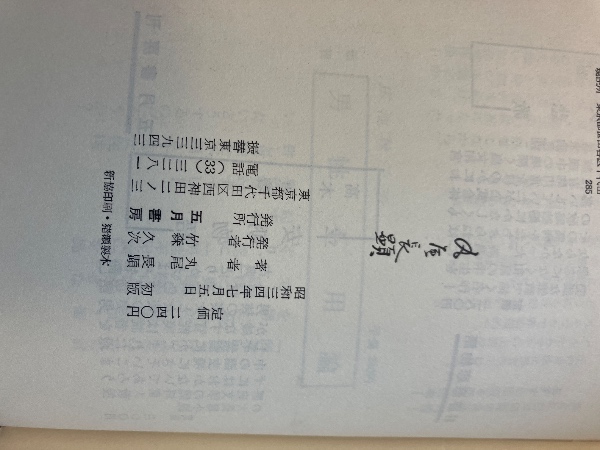 定価 二四〇円
昭和三四年七月五日 初版
著者 丸尾長顕
発行者 竹森久次
発行所 五月書房
東京都千代田区西神田二ノ三
電話(33)三三八一
振替東京三三九四三
新協印刷・製本
丸尾長顕
285